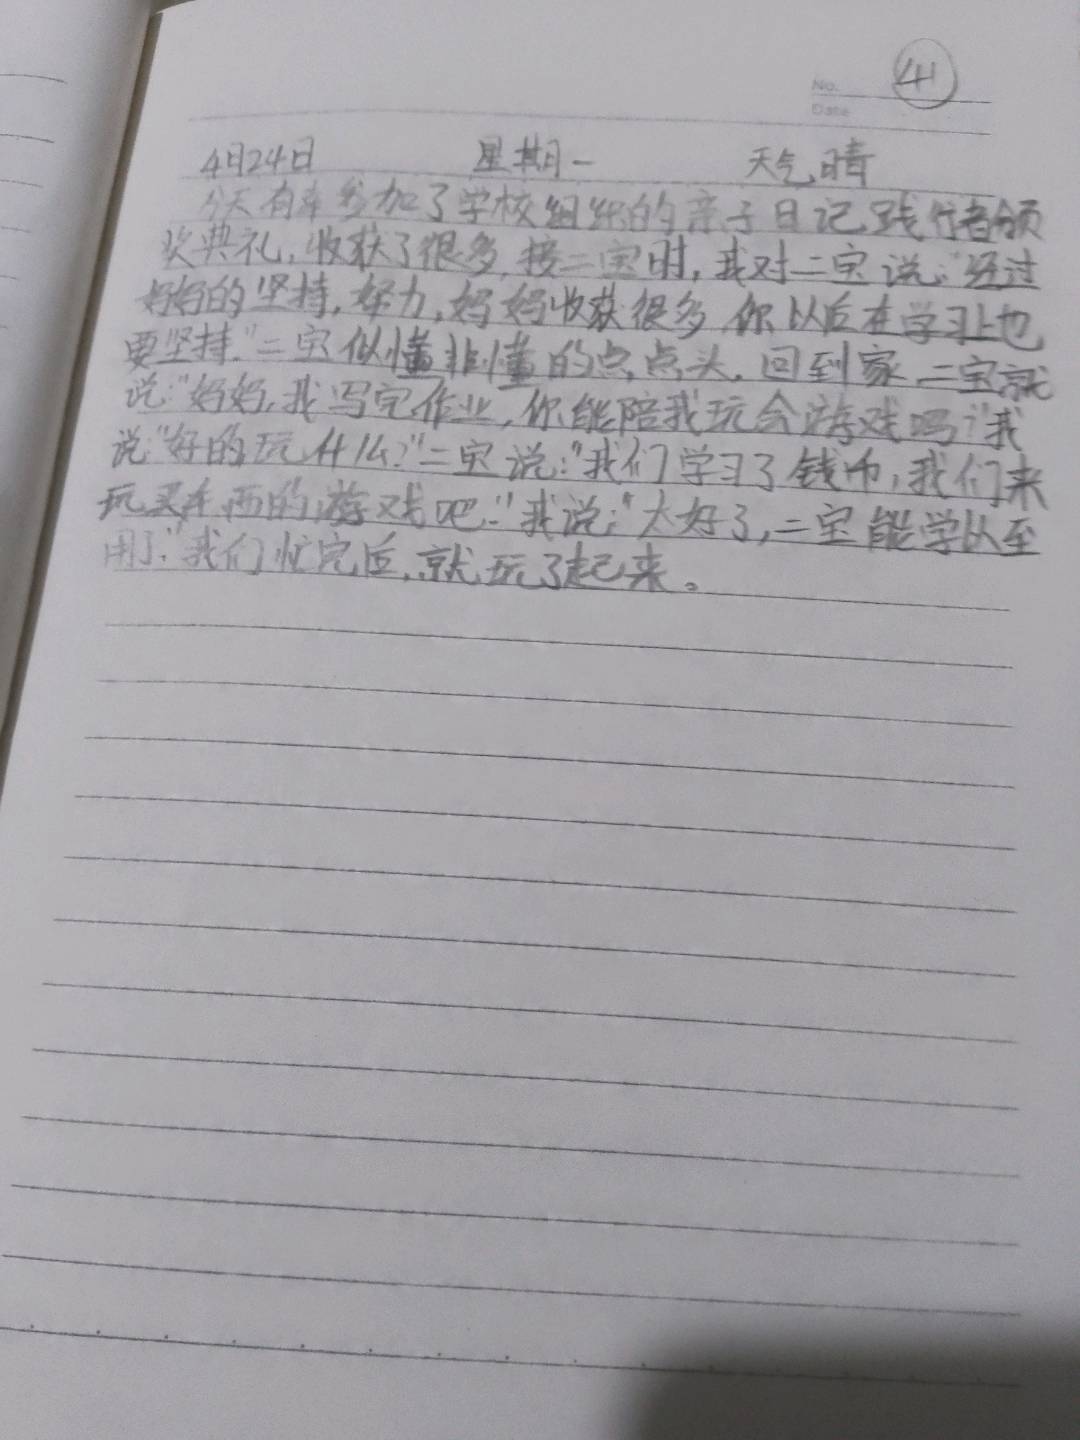 No. 41
Date
4月24日 星期一 天气晴
今天有幸参加了学校组织的亲子日记践行者颁
奖典礼,收获了很多,接二宝时,我对二宝说:“经过
妈妈的坚持,努力,妈妈收获很多,你以后在学习上也
要坚持.”二宝似懂非懂的点点头.回到家,二宝就
说:“妈妈,我写完作业,你能陪我玩会游戏吗?”我
说:“好的玩什么?”二宝说:“我们学习了钱币,我们来
玩买东西的游戏吧.”我说:“太好了,二宝能学以至
用了.”我们忙完后,就玩了起来。